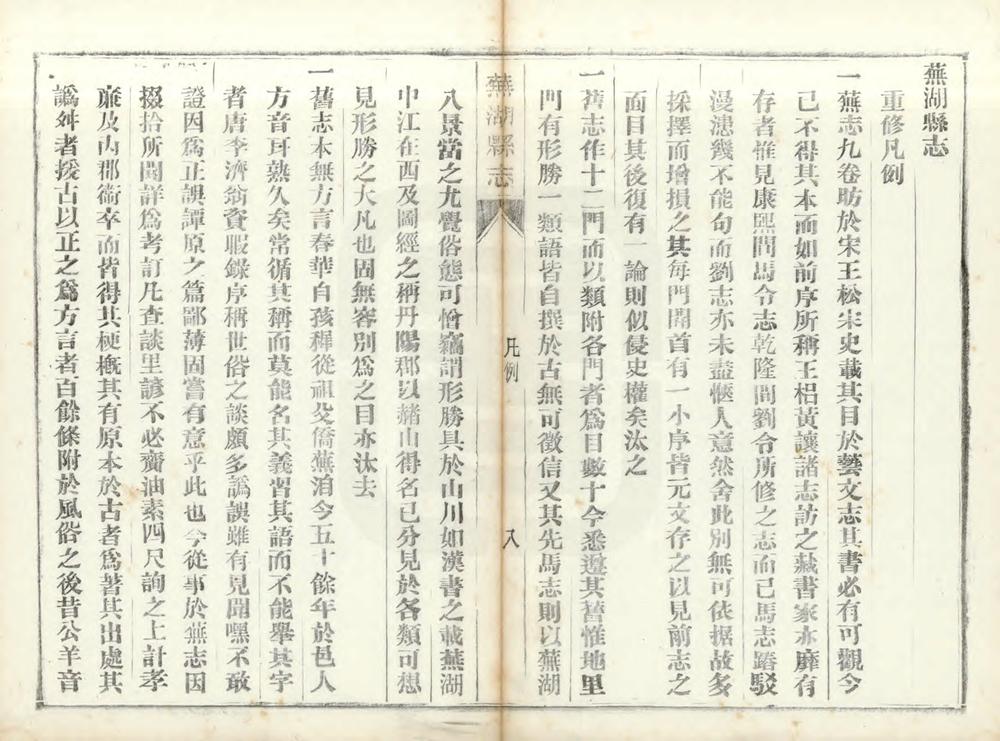 蕪湖縣志
重修凡例
一蕪志九卷昉於宋王松宋史載其目於藝文志其書必有可觀今
已不得其本而如前序所稱王梠黃讓諸志訪之藏書家亦靡有
存者惟見康熙間馬令志乾隆間劉令所修之志而已馬志踳駁
漫漶幾不能句而劉志亦未盡愜人意然舍此別無可依据故多
採擇而增損之其每門開首有一小序皆元文存之以見前志之
面目其後復有一論則似侵史權矣汰之
一舊志作十二門而以類附各門者爲目數十今悉遵其舊惟地里
門有形勝一類語皆自撰於古無可徵信又其先馬志則以蕪湖
蕪湖縣志
凡例
八
八景當之尤覺俗態可憎竊謂形勝具於山川如漢書之載蕪湖
中江在西及圖經之稱丹陽郡以赭山得名已分見於各類可想
見形勝之大凡也固無容別爲之目亦汰去
一舊志本無方言春華自孩穉從祖父僑蕪湏今五十餘年於邑人
方音耳熟久矣常循其稱而莫能名其義習其語而不能舉其字
者唐李濟翁資暇錄序稱世俗之談頗多譌誤雖有見聞嘿不敢
證因爲正誤譚原之篇鄙薄固嘗有意乎此也今從事於蕪志因
掇拾所聞詳爲考訂凡查談里諺不必齎油素四尺詢之上計孝
廉及內郡衞卒而皆得其梗概其有原本於古者爲著其出處其
譌舛者援古以正之爲方言者百餘條附於風俗之後昔公羊音